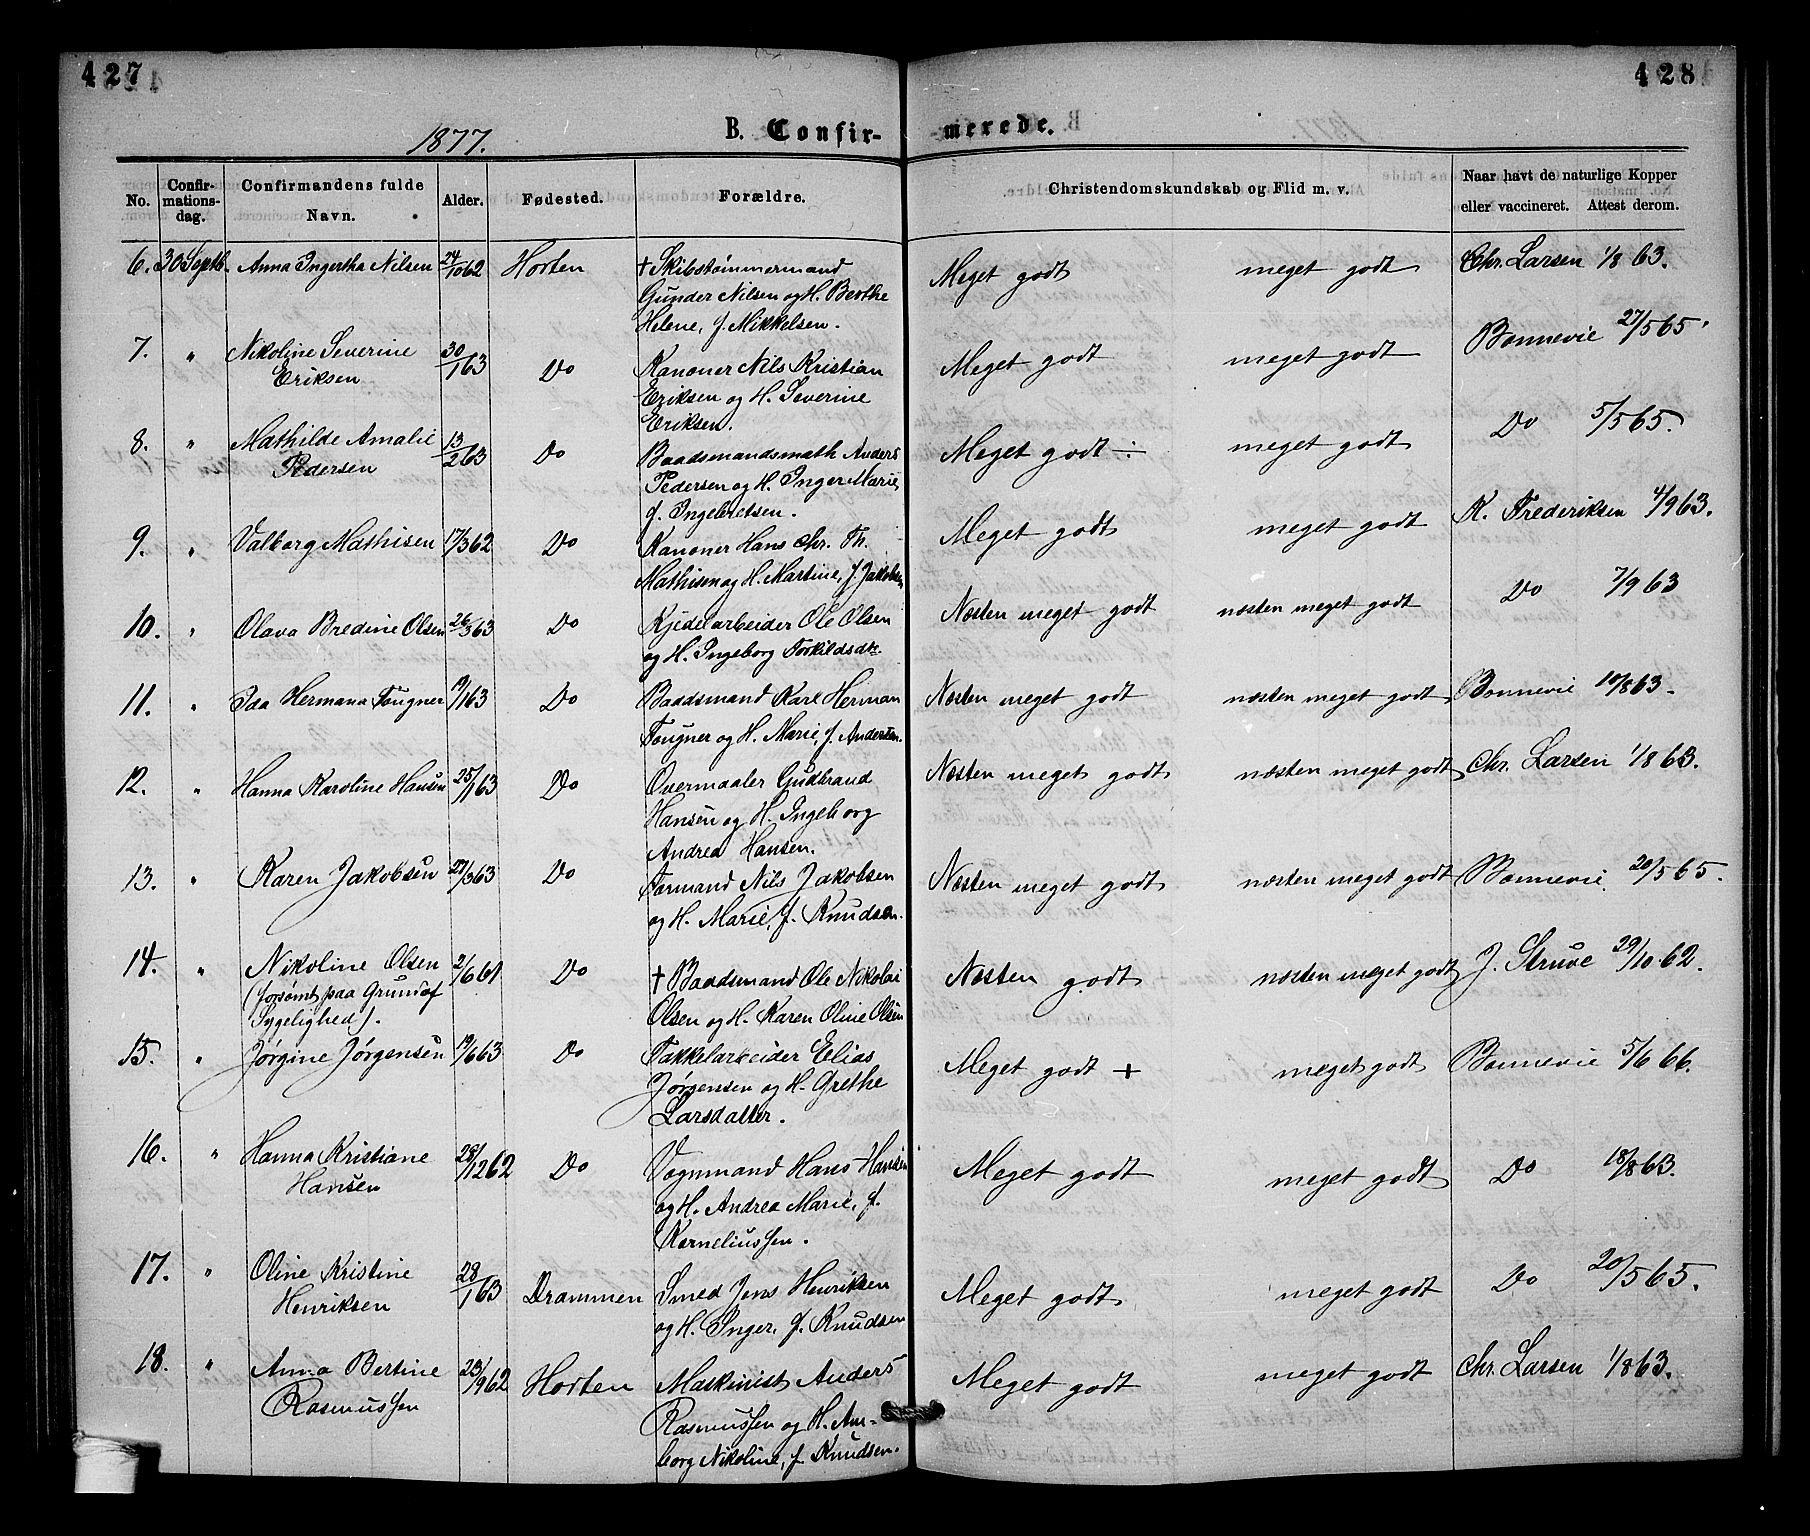 427
428
1877.
B. Confir-
merede.
No.
Confir-
mations-
dag.
Confirmandens fulde
Navn.
Alder.
Fødested.
Forældre.
Christendomskundskab og Flid m. v.
Naar havt de naturlige Kopper
eller vaccineret. Attest derom.
6. 30 Septb. Anna Ingertha Nilsen 24/10 62 Horten † Skibstømmermand Meget godt meget godt Chr. Larsen 1/8 63.
Gunder Nilsen og H. Berthe
Helene, f. Mikkelsen.
7. " Nikoline Severine 30/1 63 Do Kanoner Nils Kristian Meget godt meget godt Bonnevie 27/5 65.
Eriksen Eriksen og H. Severine
Eriksen.
8. " Mathilde Amalie 13/2 63 Do Baadsmandsmath Anders Meget godt ÷ meget godt Do 5/5 65.
Pedersen Pedersen og H. Inger Marie,
f. Ingebretsen.
9. " Valborg Mathisen 17/3 62 Do Kanoner Hans Chr. Th. Meget godt meget godt K. Frederiksen 4/9 63.
Mathisen og H. Martine, f. Jakobsen
10. " Olava Bredine Olsen 26/3 63 Do Kjedelarbeider Ole Olsen Næsten meget godt næsten meget godt Do 7/9 63
og H. Ingeborg Torkildsdtr.
11. " Ida Hermana Fougner 19/1 63 Do Baadsmand Karl Herman Næsten meget godt næsten meget godt Bonnevie 10/8 63.
Fougner og H. Marie, f. Andersen.
12. " Hanna Karoline Hansen 25/1 63 Do Overmaaler Gudbrand Næsten meget godt næsten meget godt Chr. Larsen 1/8 63.
Hansen og H. Ingeborg
Andrea Hansen.
13. " Karen Jakobsen 27/3 63 Do Formand Nils Jakobsen Næsten meget godt næsten meget godt Bonnevie 20/5 65.
og H. Marie, f. Knudsen.
14. " Nikoline Olsen 2/6 61 Do † Baadsmand Ole Nikolai Næsten godt næsten meget godt J. Struve 29/10 62.
(forsømt paa Grund af Olsen og H. Karen Oline Olsen
Sygelighed).
15. " Jørgine Jørgensen 19/6 63 Do Takkelarbeider Elias Meget godt + meget godt Bonnevie 5/6 66.
Jørgensen og H. Grethe
Larsdatter.
16. " Hanna Kristiane 28/12 62 Do Vognmand Hans Hansen Meget godt meget godt Do 18/8 63.
Hansen og H. Andrea Marie, f.
Korneliussen.
17. " Oline Kristine 28/1 63 Drammen Smed Jens Henriksen Meget godt meget godt Do 20/5 65.
Henriksen og H. Inger, f. Knudsen
18. " Anna Bertine 23/9 62 Horten Maskinist Anders Meget godt meget godt Chr. Larsen 1/8 63.
Rasmussen Rasmussen og H. Am-
borg Nikoline, f. Knudsen.